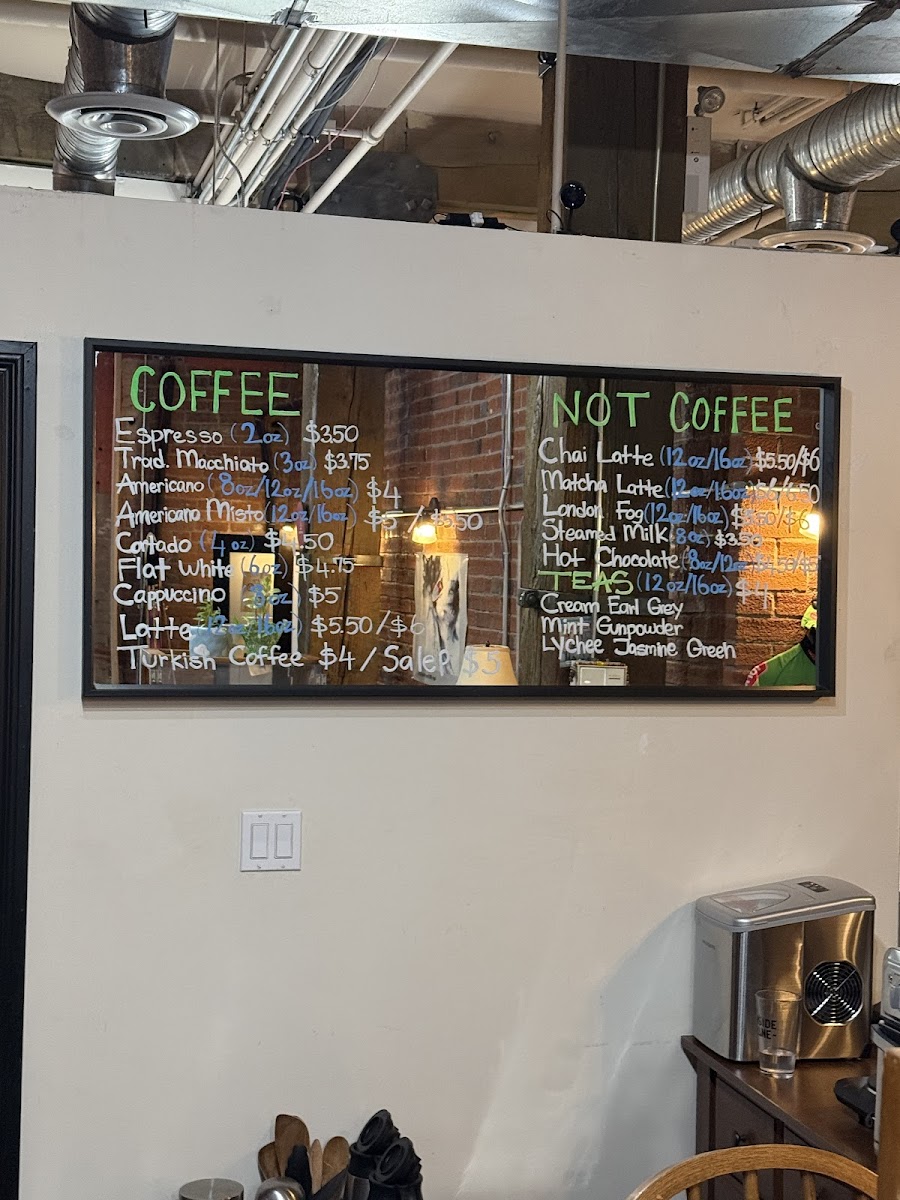 COFFEE
Espresso (2oz) $3.50
Trad. Macchiato (3oz) $3.75
Americano (8oz/12oz/16oz) $4
Americano Misto (12oz/16oz) $5 / $5.50
Cortado (4oz) $4.50
Flat White (6oz) $4.75
Cappuccino (8oz) $5
Latte (12oz/16oz) $5.50/$6
Turkish Coffee $4 / Salep $5
NOT COFFEE
Chai Latte (12oz/16oz) $5.50/$6
Matcha Latte (12oz/16oz) $6/6.50
London Fog (12oz/16oz) $5.50/$6
Steamed Milk (8oz) $3.50
Hot Chocolate (8oz/12oz)
TEAS (12oz/16oz) $4
Cream Earl Grey
Mint Gunpowder
Lychee Jasmine Green